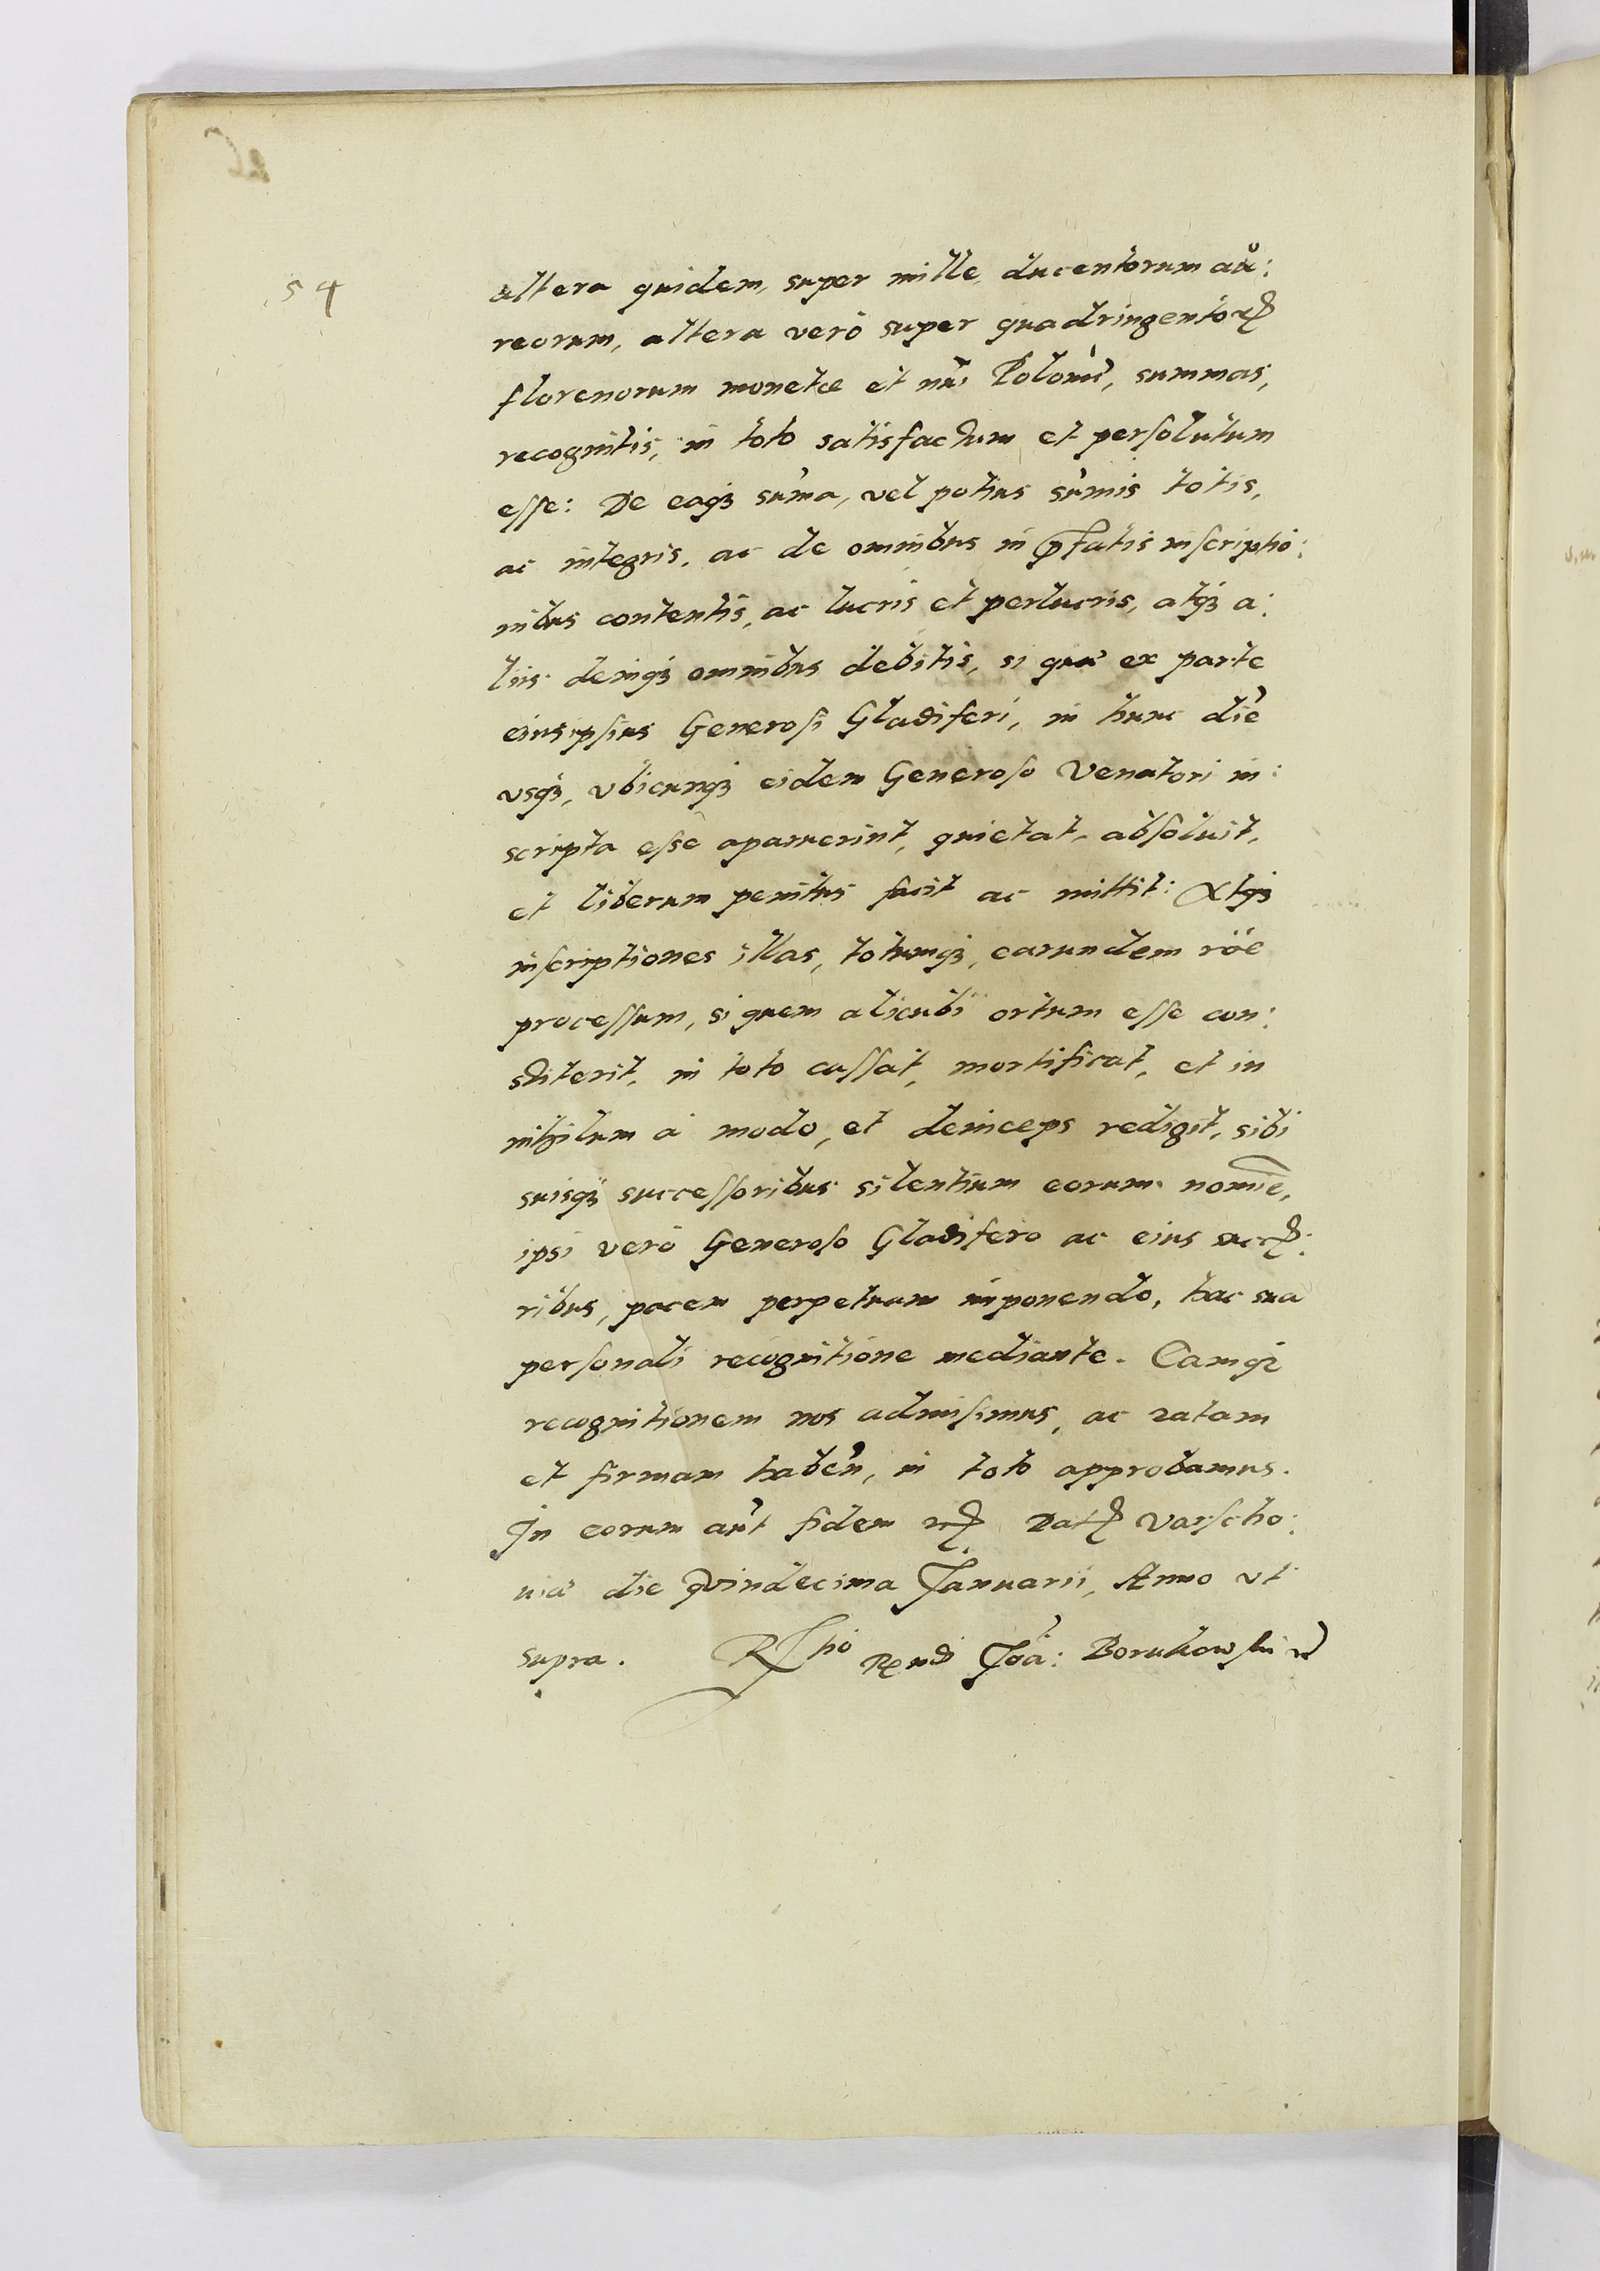 54
altera quidem, super mille, ducentorum au:
reorum, altera verò super quadringentoꝝ
florenorum monetæ et nri Poloni, summas,
recognitis, in toto satisfactum et persolutum
esse: De eaqꝫ suma, vel potius sumis totis,
ac integris, ac de omnibus in pfatis inscriptio:
nibus contentis, ac lucris et perlucris, atqꝫ a:
liis deniqꝫ omnibus debitis, si qua ex parte
eius ipsius Generosi Gladiferi, in hunc diè
vsqꝫ, vbicunqꝫ eidem Generoso Venatori in:
scripta esse aparuerint, quietat, absoluit,
et liberum penitus facit ac mittit: Atqꝫ
inscriptiones illas, totumqꝫ, earundem röe
processum, si quem alicubi ortum esse con:
stiterit, in toto cassat, mortificat, et in
nihilum à modo, et deinceps redigit, sibi
suisqꝫ successoribus silentium eorum nomie,
ipsi verò Generoso Gladifero ac eius succ:
ribus, pacem perpetuam imponendo, hac sua
personali recognitione mediante. Eamqꝫ
recognitionem nos admisimus, ac ratam
et firmam haben, in toto approbamus.
In eorum aut fidem Dat Varscho:
uia die quindecima Januarii, Anno vt
supra. Rndi Joa: Borukowski